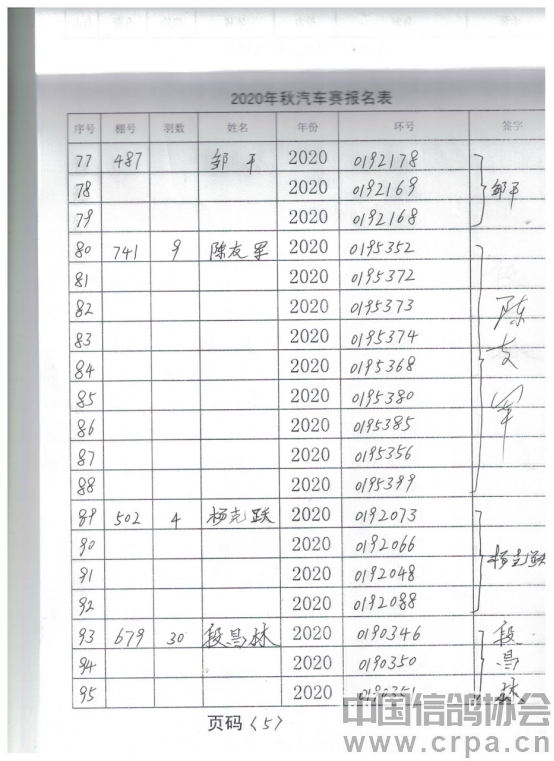 2020年秋汽车赛报名表
序号 棚号 羽数 姓名 年份 环号 签字
77 487 邹平 2020 0192178
78 2020 0192169 邹平
79 2020 0192168
80 741 9 陈友军 2020 0195352
81 2020 0195372
82 2020 0195373 陈
83 2020 0195374
84 2020 0195368 友
85 2020 0195380 军
86 2020 0195385
87 2020 0195356
88 2020 0195399
89 502 4 杨克跃 2020 0192073
90 2020 0192066
91 2020 0192048 杨克跃
92 2020 0192088
93 679 30 段昌林 2020 0190346 段
94 2020 0190350 昌
95 2020 0190351 林
页码（5）
中国信鸽协会
www.crpa.cn